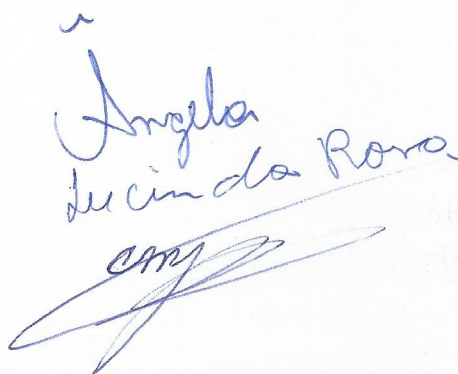 Ângela
Lucinda Rosa